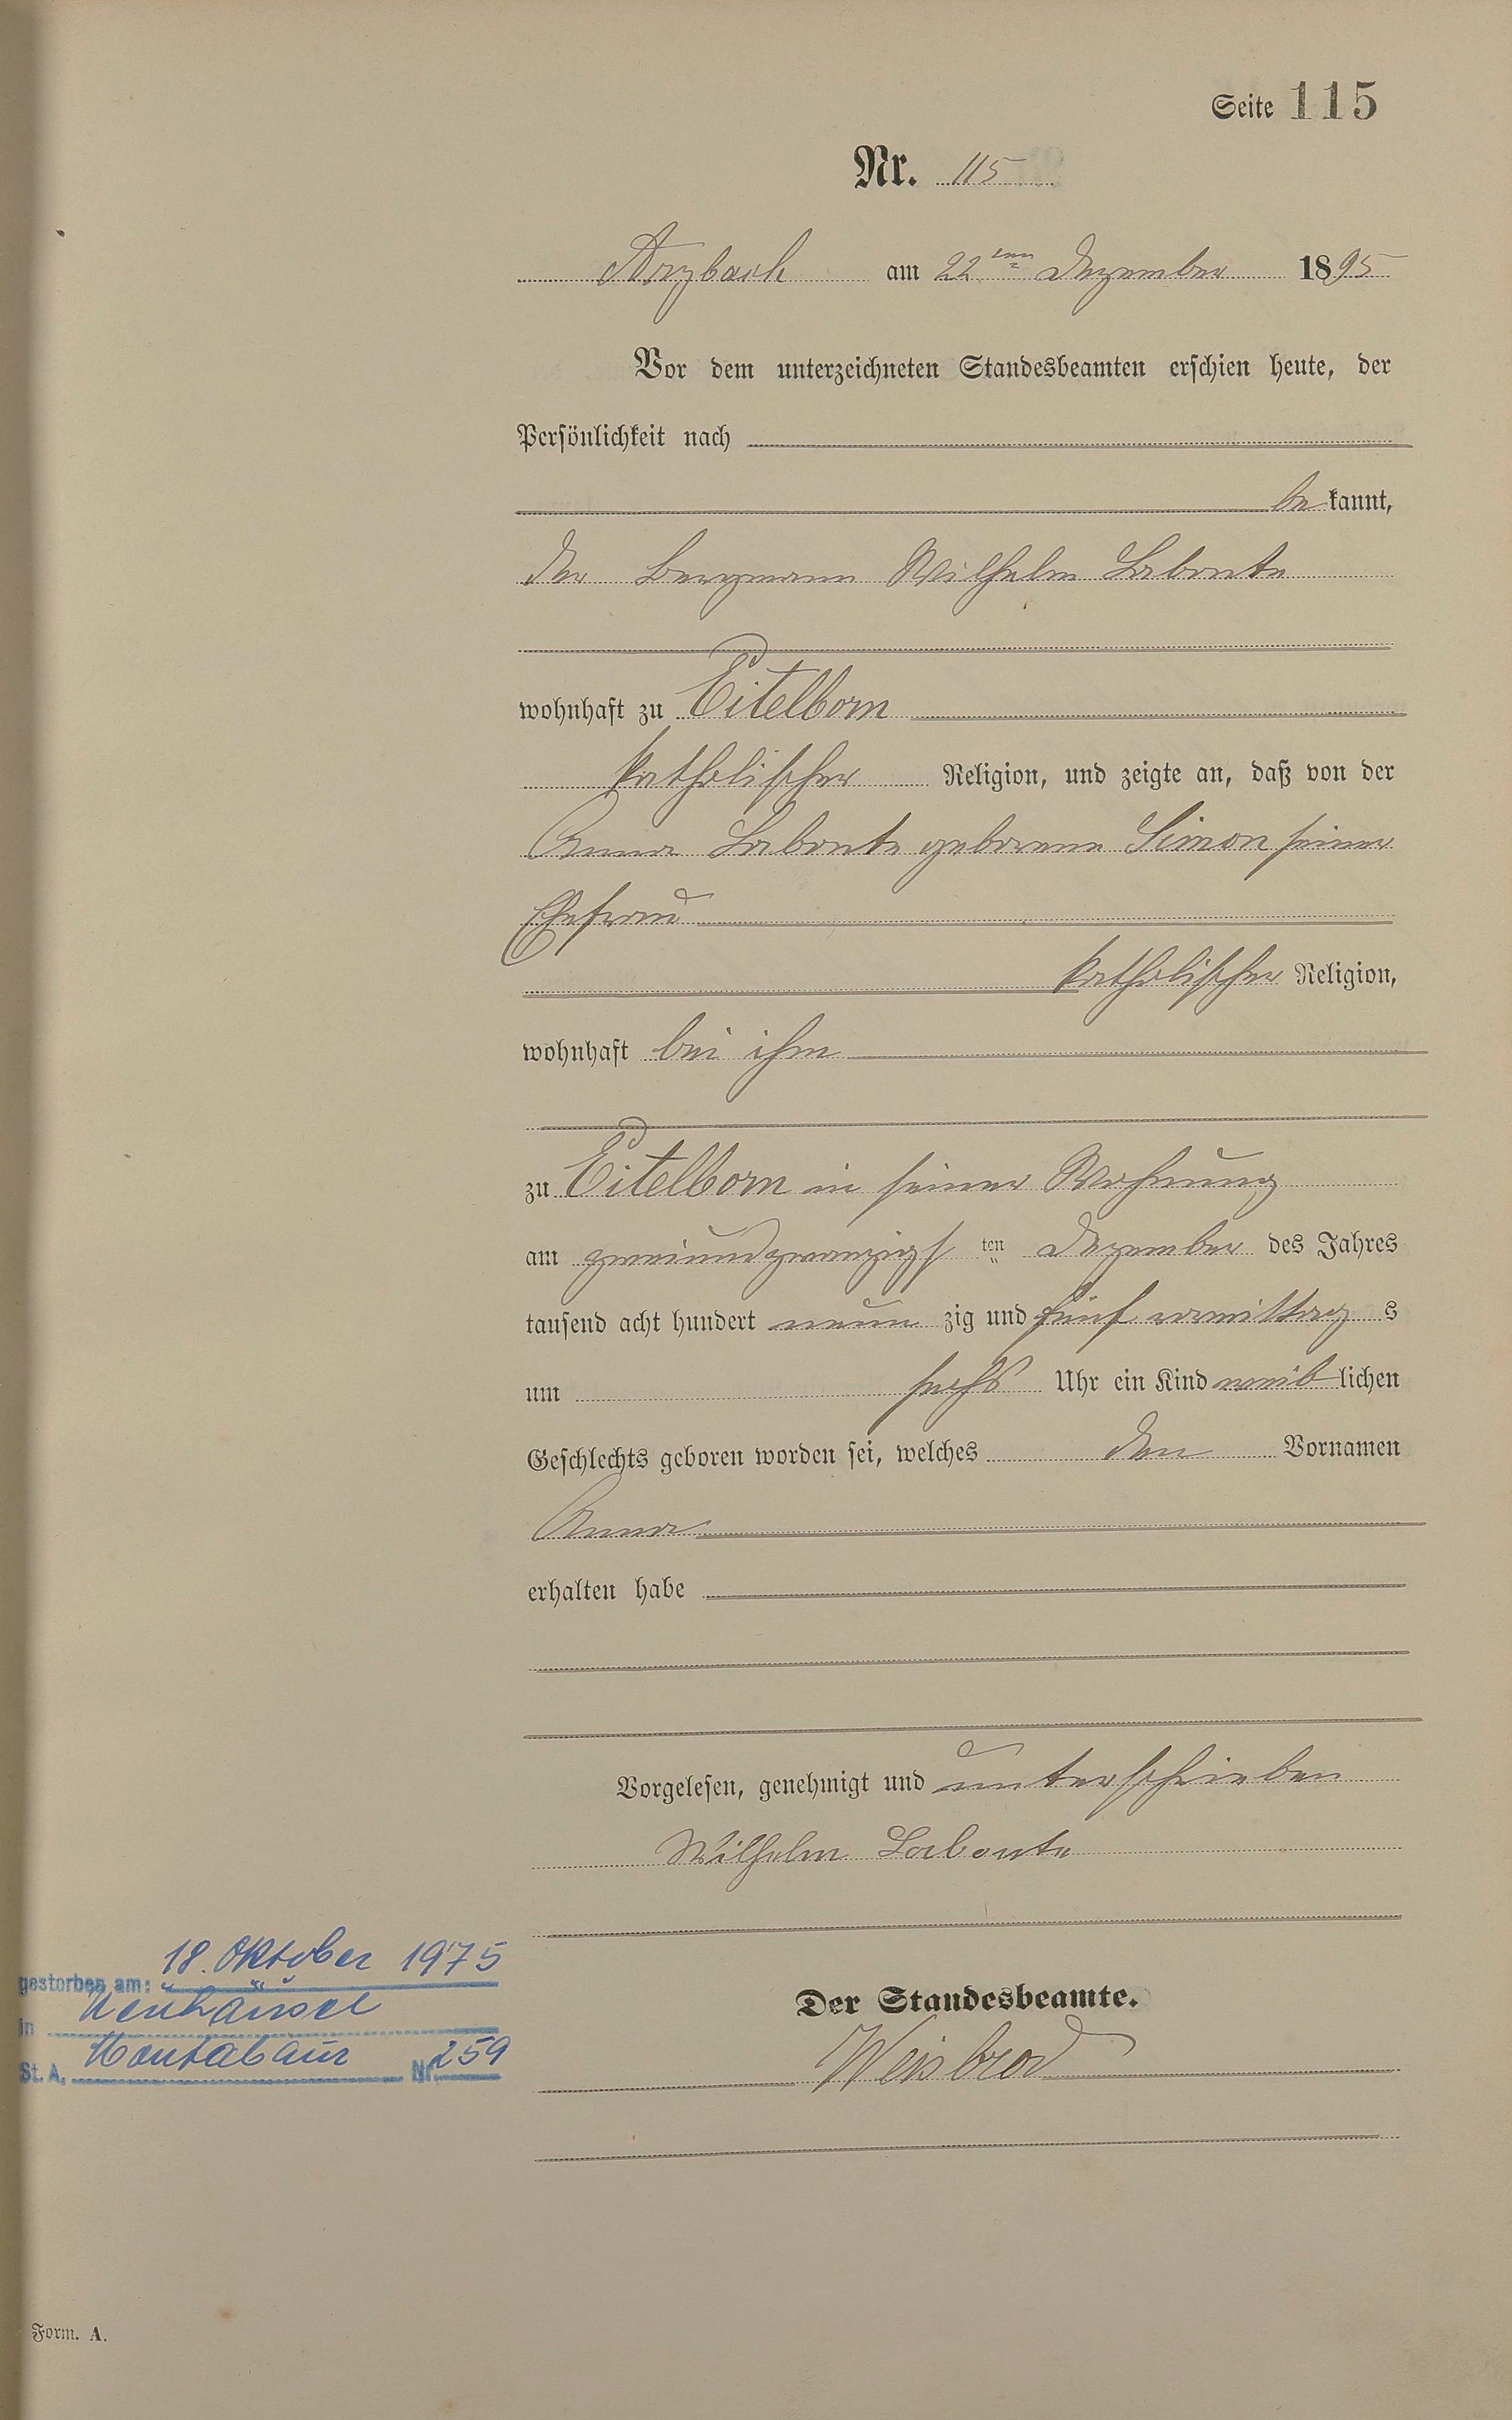 Seite 115
Nr. 115
Arzbach am 22ten Dezember 1895
Vor dem unterzeichneten Standesbeamten erschien heute, der
Persönlichkeit nach
bekannt,
der Bergmann Wilhelm Labonte
wohnhaft zu Eitelborn
katholischer Religion, und zeigte an, daß von der
Anna Labonte geborene Simon seiner
Ehefrau
katholischer Religion,
wohnhaft bei ihm
zu Eitelborn in seiner Wohnung
am zweiundzwanzigsten Dezember des Jahres
tausend acht hundert neunzig und fünf vormittags
um sechs Uhr ein Kind weiblichen
Geschlechts geboren worden sei, welches den Vornamen
Anna
erhalten habe
Vorgelesen, genehmigt und unterschrieben
Wilhelm Labonte
Der Standesbeamte.
Weisbrod
gestorben am: 18. Oktober 1975
in Neuhäusel
St. A. Montabaur Nr. 259
Form. A.